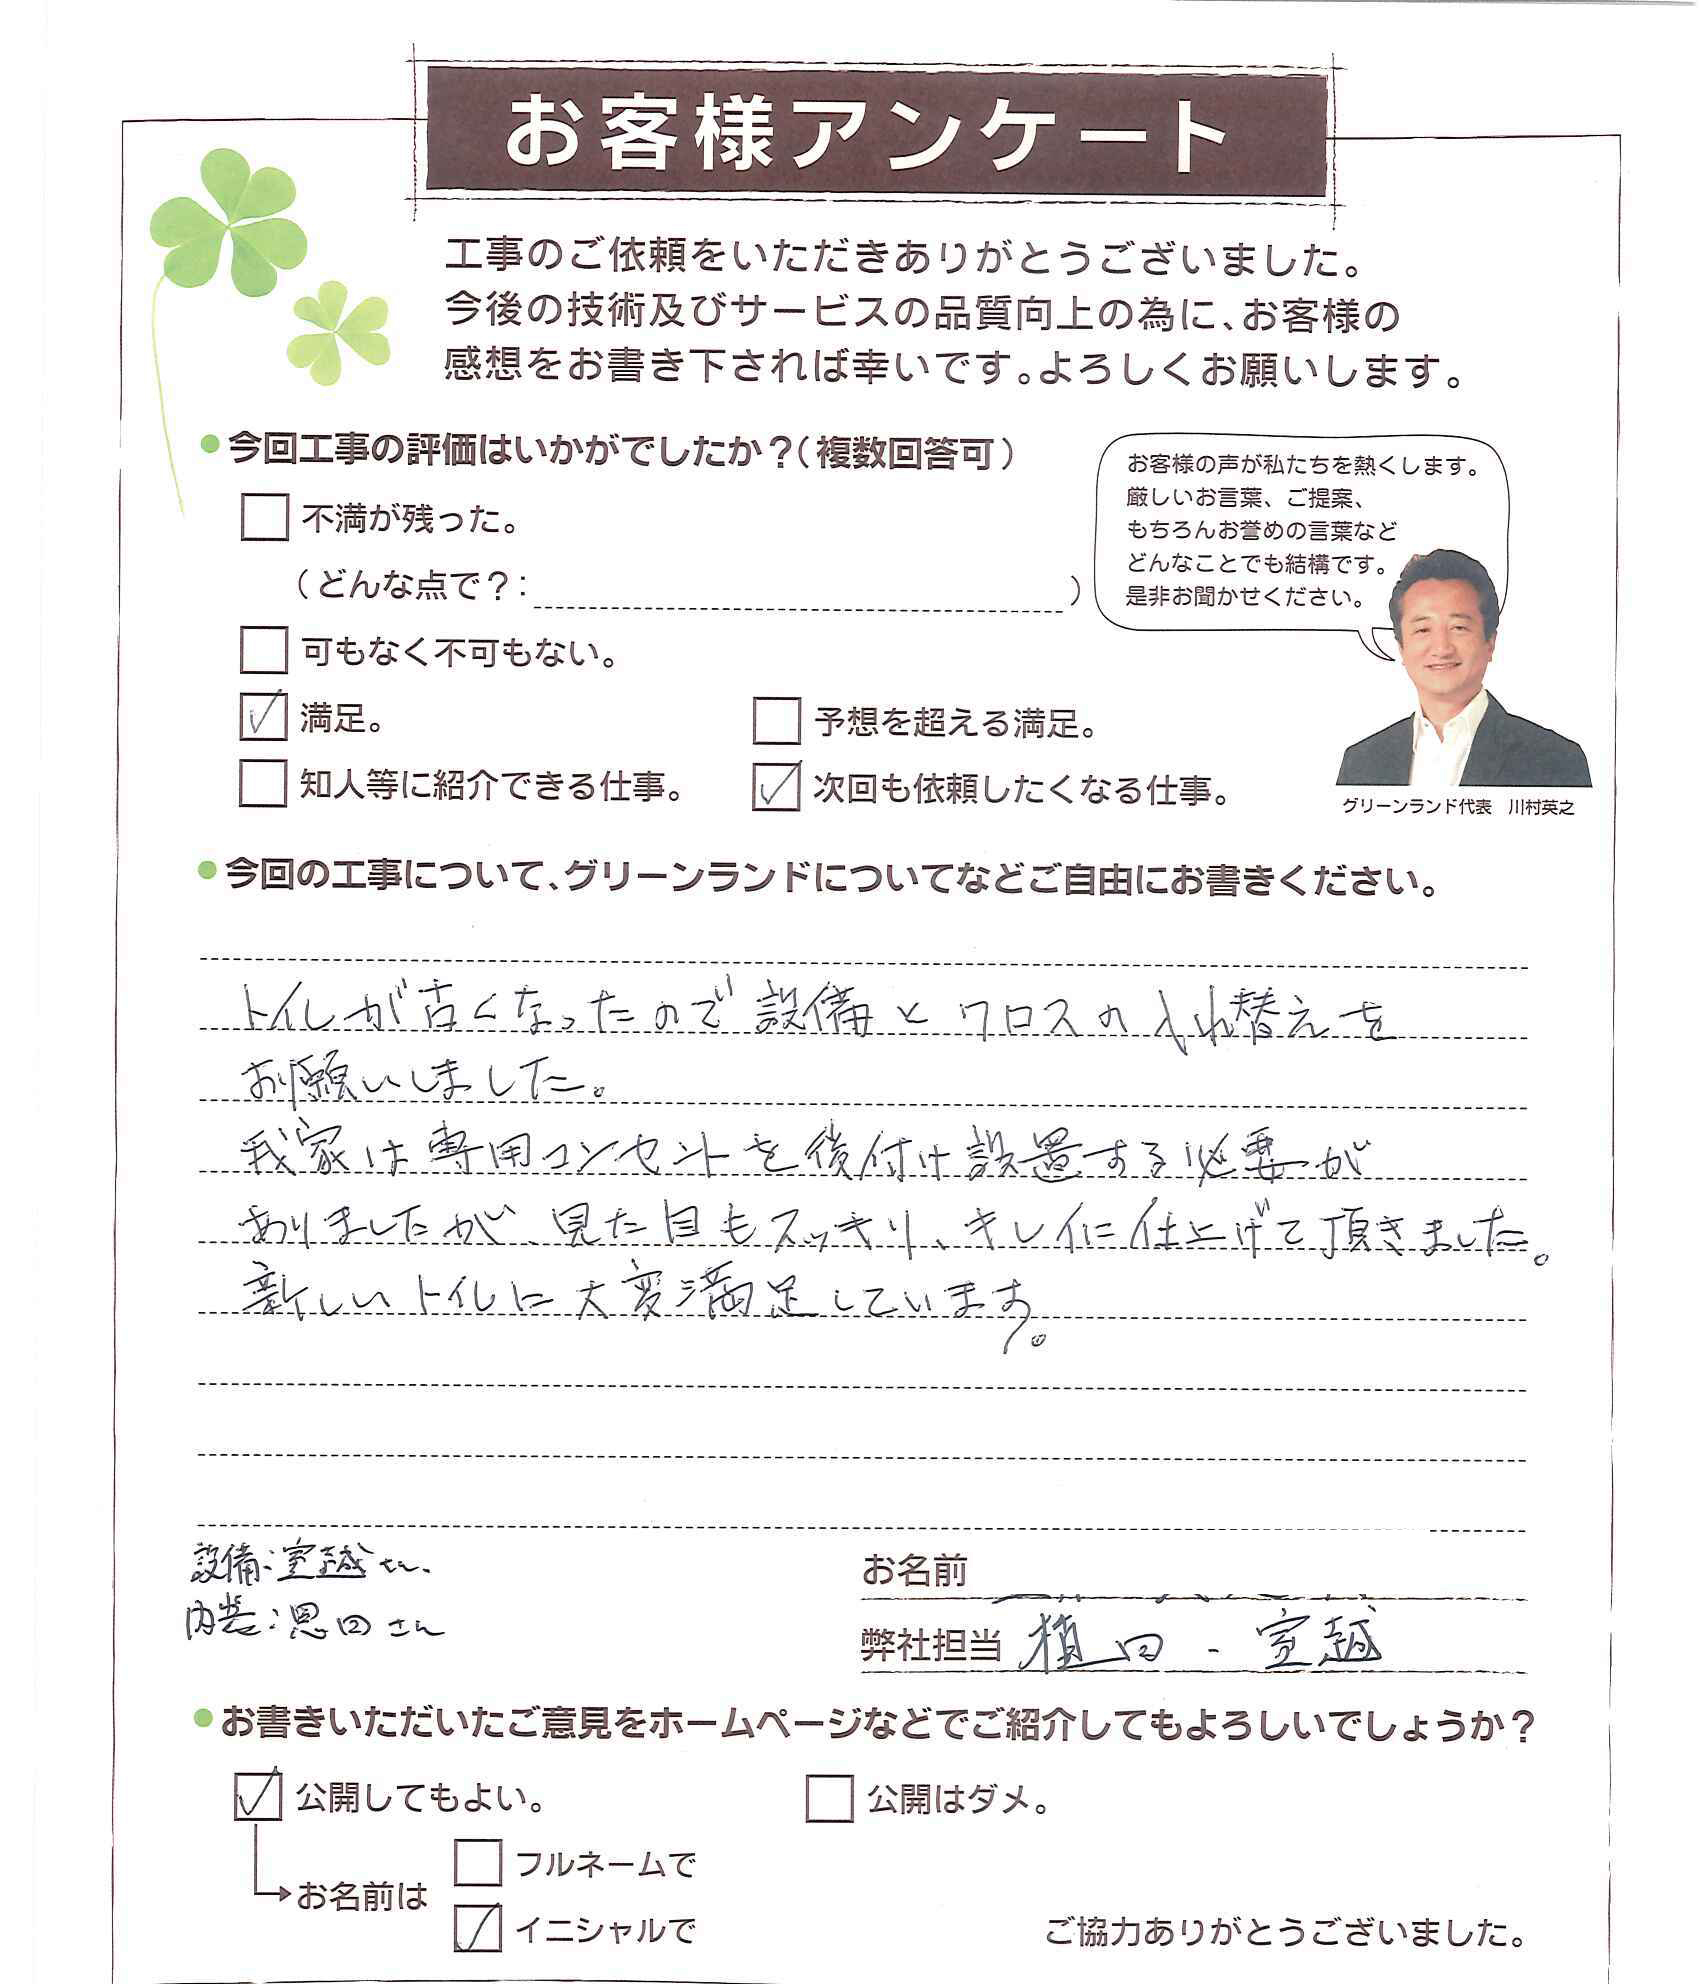 お客様アンケート
工事のご依頼をいただきありがとうございました。
今後の技術及びサービスの品質向上の為に、お客様の
感想をお書き下されば幸いです。よろしくお願いします。
今回工事の評価はいかがでしたか？（複数回答可）
不満が残った。
（どんな点で？：　）
可もなく不可もない。
満足。
予想を超える満足。
知人等に紹介できる仕事。
次回も依頼したくなる仕事。
お客様の声が私たちを熱くします。
厳しいお言葉、ご提案、
もちろんお誉めの言葉など
どんなことでも結構です。
是非お聞かせください。
グリーンランド代表　川村英之
今回の工事について、グリーンランドについてなどご自由にお書きください。
トイレが古くなったので設備とクロスの入れ替えを
お願いしました。
我家は専用コンセントを後付け設置する必要が
ありましたが、見た目もスッキリ、キレイに仕上げて頂きました。
新しいトイレに大変満足しています。
設備：室越さん
内装：恩田さん
お名前
弊社担当 植田・室越
お書きいただいたご意見をホームページなどでご紹介してもよろしいでしょうか？
公開してもよい。
公開はダメ。
お名前は
フルネームで
イニシャルで
ご協力ありがとうございました。